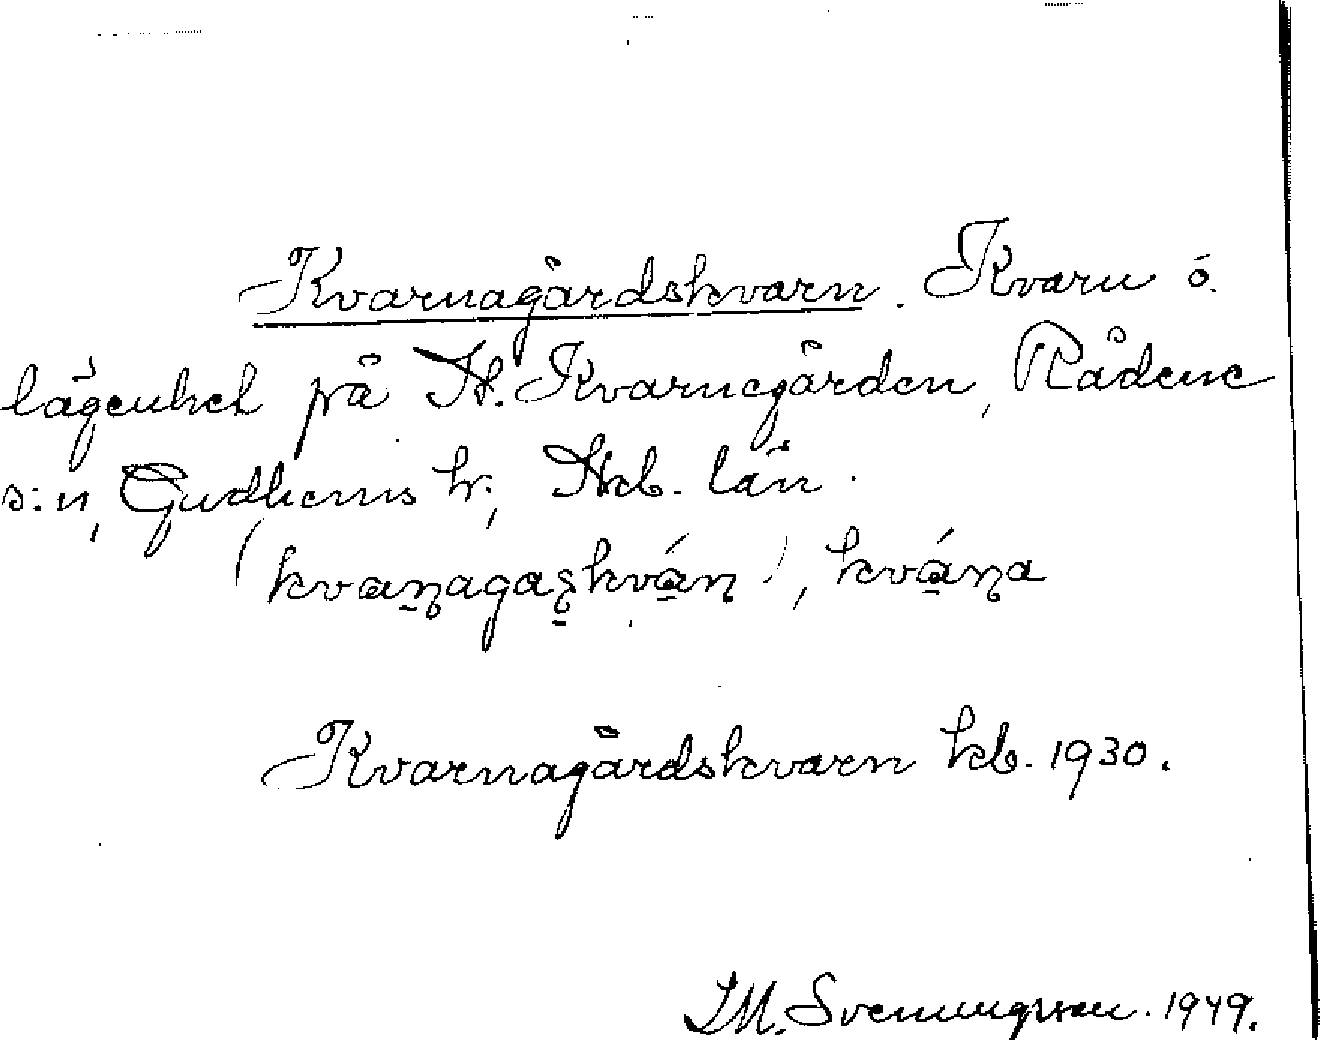 Kvarnagårdskvarn. Kvarn o.
lägenhet på St. Kvarnegården, Rådene
s:n, Gudhems h., Skb. län.
(kvaṇagaṣkváṇ), kváṇa
Kvarnagårdskvarn kb. 1930.
I.M. Svenungsson. 1949.